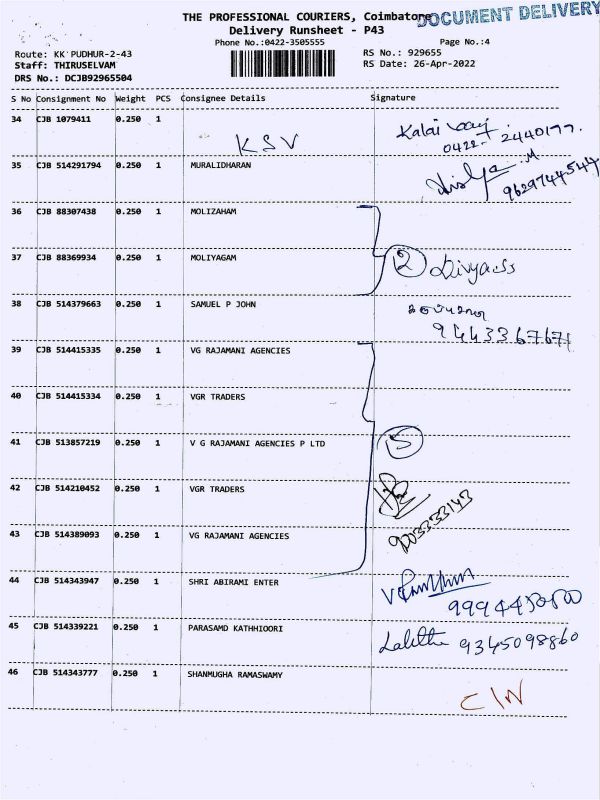 THE PROFESSIONAL COURIERS, Coimbatore
DOCUMENT DELIVERY
Delivery Runsheet - P43
Phone No.:0422-3505555
Page No.:4
Route: KK PUDHUR-2-43
RS No.: 929655
Staff: THIRUSELVAM
RS Date: 26-Apr-2022
DRS No.: DCJB92965504
S No Consignment No Weight PCS Consignee Details Signature
34 CJB 1079411 0.250 1
KSV
Kalai
0422- 2440177.
35 CJB 514291794 0.250 1 MURALIDHARAN
9629744544
36 CJB 88307438 0.250 1 MOLIZAHAM
37 CJB 88369934 0.250 1 MOLIYAGAM
2 Divya
38 CJB 514379663 0.250 1 SAMUEL P JOHN
9443367671
39 CJB 514415335 0.250 1 VG RAJAMANI AGENCIES
40 CJB 514415334 0.250 1 VGR TRADERS
41 CJB 513857219 0.250 1 V G RAJAMANI AGENCIES P LTD
5
42 CJB 514210452 0.250 1 VGR TRADERS
43 CJB 514389093 0.250 1 VG RAJAMANI AGENCIES
44 CJB 514343947 0.250 1 SHRI ABIRAMI ENTER
45 CJB 514339221 0.250 1 PARASAMD KATHHIOORI
Lalitha 9345098860
46 CJB 514343777 0.250 1 SHANMUGHA RAMASWAMY
C/N